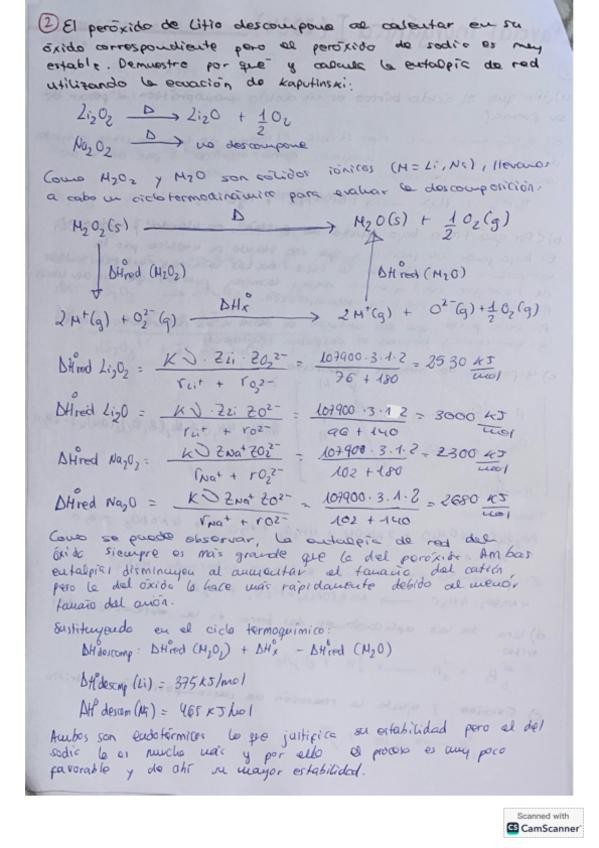 ② El peróxido de Litio descompone al calentar en su
óxido correspondiente pero el peróxido de sodio es muy
estable. Demuestre por qué y calcula la entalpía de red
utilizando la ecuación de Kaputinski:
Li₂O₂ —Δ→ Li₂O + 1/2 O₂
Na₂O₂ —Δ→ no descompone
Como M₂O₂ y M₂O son sólidos iónicos (M = Li, Na), llevamos
a cabo un ciclo termodinámico para evaluar la descomposición.
M₂O₂(s) —Δ→ M₂O(s) + 1/2 O₂(g)
ΔH°red (M₂O₂) ΔH°red (M₂O)
2M⁺(g) + O₂²⁻(g) —ΔHx°→ 2M⁺(g) + O²⁻(g) + 1/2 O₂(g)
ΔH°red Li₂O₂ = K ν · ZLi · ZO₂²⁻ / rLi⁺ + rO₂²⁻ = 107900 · 3 · 1 · 2 / 76 + 180 = 2530 kJ/mol
ΔH°red Li₂O = K ν · ZLi ZO²⁻ / rLi⁺ + rO²⁻ = 107900 · 3 · 1 · 2 / + 140 = 3000 kJ/mol
ΔH°red Na₂O₂ = K ν ZNa⁺ ZO₂²⁻ / rNa⁺ + rO₂²⁻ = 107900 · 3 · 1 · 2 / 102 + 180 = 2300 kJ/mol
ΔH°red Na₂O = K ν ZNa⁺ ZO²⁻ / rNa⁺ + rO²⁻ = 107900 · 3 · 1 · 2 / 102 + 140 = 2680 kJ/mol
Como se puede observar, la entalpía de red del
óxido siempre es más grande que la del peróxido. Ambas
entalpías disminuyen al aumentar el tamaño del catión,
pero la del óxido lo hace más rápidamente debido al menor
tamaño del anión.
Sustituyendo en el ciclo termoquímico:
ΔH°descomp: ΔH°red (M₂O₂) + ΔHx° - ΔH°red (M₂O)
ΔH°descomp (Li) = 375 kJ/mol
ΔH°descom (Na) = 465 kJ/mol
Ambos son endotérmicos lo que justifica su estabilidad pero el del
sodio lo es mucho más y por ello el proceso es muy poco
favorable y de ahí su mayor estabilidad.
Scanned with
CS CamScanner